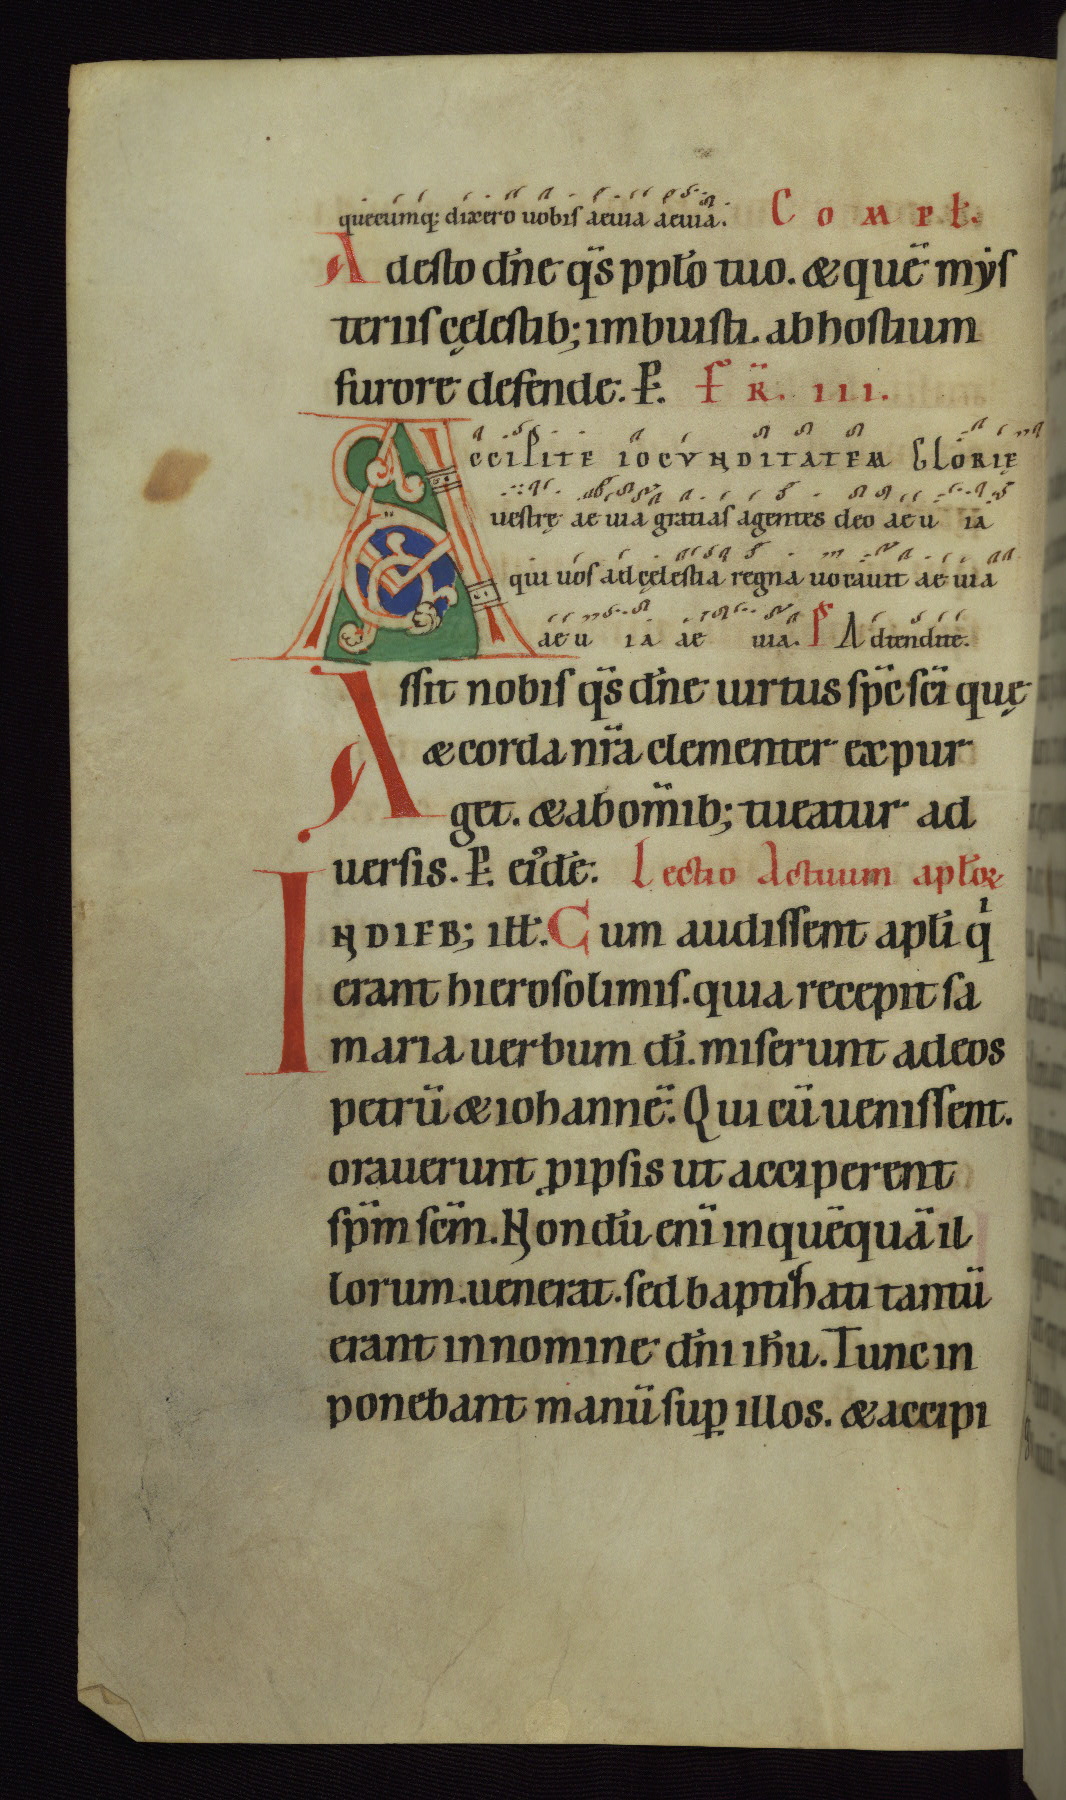 quecumq; dixero uobis aeuia aeuia. Compl.
Adesto dn̄e qs̄ pplo tuo. & quē mẏs
teriis cęlestib; imbuisti. ab hostium
furore defende. P. FR. III.
ACCIPITE IOCUNDITATEM GLORIĘ
uestrę ae uia gratias agentes deo aeu ia
qui uos ad cęlestia regna uocauit ae uia
aeu ia ae uia. Ps Adtendite.
Assit nobis qs̄ dn̄e uirtus sp̄c sc̄i quę
& corda nr̄a clementer expur
get. & ab om̄ib; tueatur ad
uersis. P. eiđē: Lectio Actuum aploꝝ
IN DIEB; ILL. Cum audissent apli q
erant hierosolimis. quia recepit sa
maria uerbum dī. miserunt ad eos
petrū & iohannē: Qui cū uenissent.
orauerunt ꝓ ipsis ut acciperent
sp̄m sc̄m. Non dū enī in quēquā il
lorum. uenerat. sed baptizati tantū
erant in nomine dn̄i ihu. Tunc in
ponebant manū sup̱ illos. & accipi